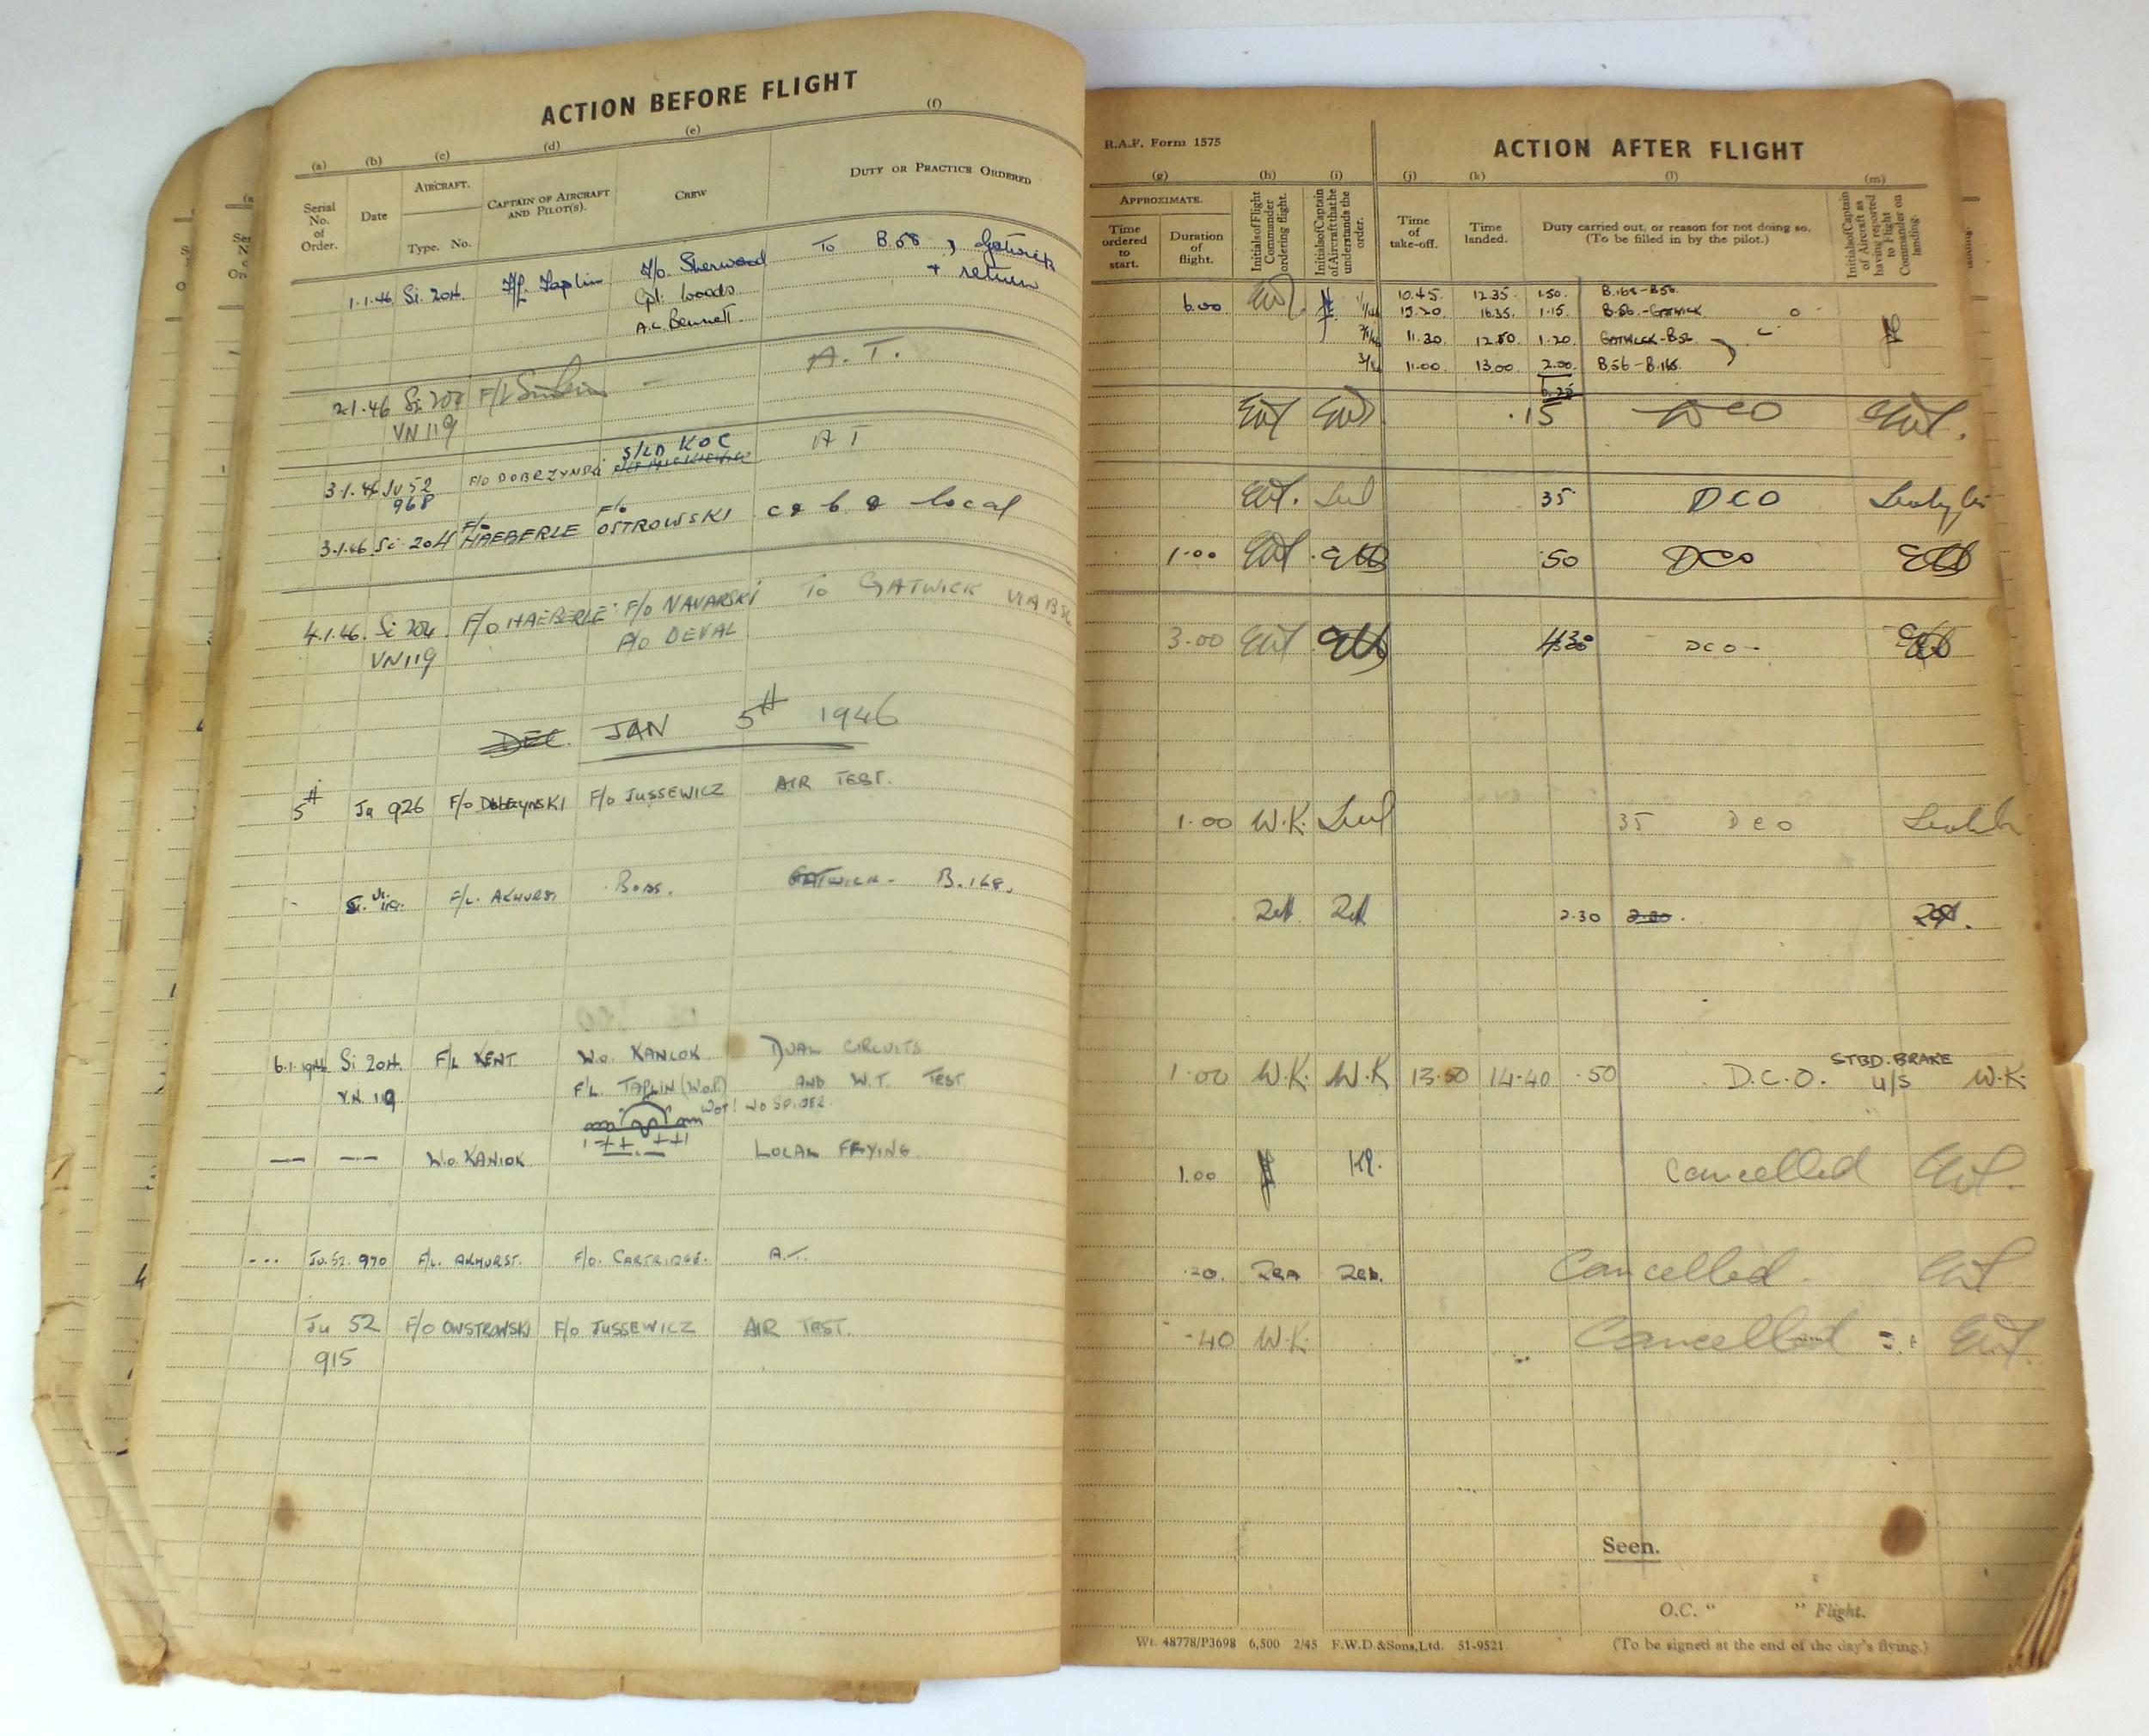 ACTION BEFORE FLIGHT
(a) (b) (c) (d) (e) (f)
Serial No. of Order.
Date
AIRCRAFT.
Type. No.
CAPTAIN OF AIRCRAFT AND PILOT(S).
CREW
DUTY OR PRACTICE ORDERED
1.1.46 Si 204. F/L Taplin F/o. Sherwood To B.58, Gatwick
Cpl. Woods + return
A.C. Bennett.
2.1.46 Si 204 F/L — A.T.
VN 119
3.1.46 Ju 52 F/O DOBRZYNSKI S/LD KOC A T
968
3.1.46 Si 204 F/o HAEBERLE F/o OSTROWSKI c & b & local
4.1.46. Si 204 F/o HAEBERLE F/o NAVARSKI To GATWICK VIA B56
VN119 P/O DEVAL
DEC. JAN 5th 1946
5th Ju 926 F/o DOBRZYNSKI F/o JUSSEWICZ AIR TEST.
F/L. AKHURST BOSS. GATWICK - B.168.
6.1.1946 Si 204. F/L KENT W.O. KANIOK DUAL CIRCUITS
VN 119 F/L. TAPLIN (W.O.P.) AND W.T. TEST
WOT! NO SPIDER.
— — W.O. KANIOK LOCAL FLYING
--- Ju. 52. 970 F/L. AKHURST. F/O. CARTRIDGE. A.T.
Ju 52 F/O OWSTROWSKI F/o JUSSEWICZ AIR TEST.
915
R.A.F. Form 1575
ACTION AFTER FLIGHT
(g) (h) (i) (j) (k) (l) (m)
APPROXIMATE.
Time ordered to start.
Duration of flight.
Initials of Flight Commander ordering flight.
Initials of Captain of Aircraft that he understands the order.
Time of take-off.
Time landed.
Duty carried out, or reason for not doing so.
(To be filled in by the pilot.)
Initials of Captain of Aircraft as having reported to Flight Commander on landing.
6.00 10.45. 12.35. 1.50. B.168-B56.
15.20 16.35. 1.15. B.56.-GATWICK
11.30. 12.50. 1.20. GATWICK-B56
11.00 13.00 2.00. B56-B.168.
.15 DCO
35 DCO
1.00 50 DCO
3.00 DCO-
1.00 W.K. 35 DCO
2.30 2.30.
1.00 W.K. W.K 13.50 14.40 .50 D.C.O. STBD. BRAKE
u/s W.K.
1.00 Cancelled
Cancelled.
.40 W.K. Cancelled
Seen.
O.C. “ ” Flight.
Wt. 48778/P3698 6,500 2/45 F.W.D.&Sons,Ltd. 51-9521.
(To be signed at the end of the day's flying.)